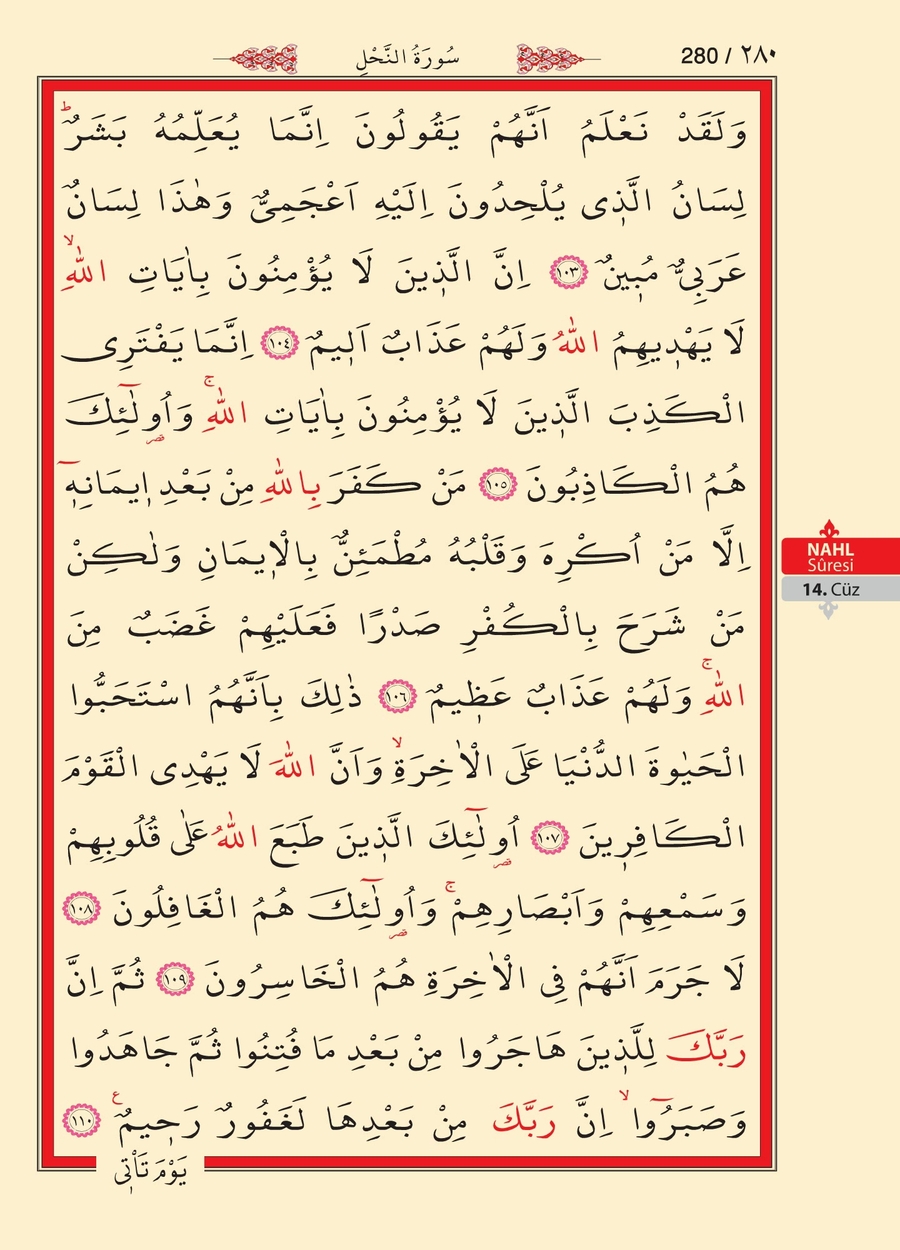 سُورَةُ النَّحْلِ
280 / ٢٨٠
وَلَقَدْ نَعْلَمُ اَنَّهُمْ يَقُولُونَ اِنَّمَا يُعَلِّمُهُ بَشَرٌۜ
لِسَانُ الَّذ۪ى يُلْحِدُونَ اِلَيْهِ اَعْجَمِىٌّ وَهٰذَا لِسَانٌ
عَرَبِىٌّ مُب۪ينٌ ﴿١٠٣﴾ اِنَّ الَّذ۪ينَ لَا يُؤْمِنُونَ بِاٰيَاتِ اللّٰهِۙ
لَا يَهْد۪يهِمُ اللّٰهُ وَلَهُمْ عَذَابٌ اَل۪يمٌ ﴿١٠٤﴾ اِنَّمَا يَفْتَرِى
الْكَذِبَ الَّذ۪ينَ لَا يُؤْمِنُونَ بِاٰيَاتِ اللّٰهِۚ وَاُو۬لٰٓئِكَ
هُمُ الْكَاذِبُونَ ﴿١٠٥﴾ مَنْ كَفَرَ بِاللّٰهِ مِنْ بَعْدِ ا۪يمَانِه۪ٓ
اِلَّا مَنْ اُكْرِهَ وَقَلْبُهُ مُطْمَئِنٌّ بِالْا۪يمَانِ وَلٰكِنْ
مَنْ شَرَحَ بِالْكُفْرِ صَدْرًا فَعَلَيْهِمْ غَضَبٌ مِنَ
اللّٰهِۚ وَلَهُمْ عَذَابٌ عَظ۪يمٌ ﴿١٠٦﴾ ذٰلِكَ بِاَنَّهُمُ اسْتَحَبُّوا
الْحَيٰوةَ الدُّنْيَا عَلَى الْاٰخِرَةِۙ وَاَنَّ اللّٰهَ لَا يَهْدِى الْقَوْمَ
الْكَافِر۪ينَ ﴿١٠٧﴾ اُو۬لٰٓئِكَ الَّذ۪ينَ طَبَعَ اللّٰهُ عَلٰى قُلُوبِهِمْ
وَسَمْعِهِمْ وَاَبْصَارِهِمْۚ وَاُو۬لٰٓئِكَ هُمُ الْغَافِلُونَ ﴿١٠٨﴾
لَا جَرَمَ اَنَّهُمْ فِى الْاٰخِرَةِ هُمُ الْخَاسِرُونَ ﴿١٠٩﴾ ثُمَّ اِنَّ
رَبَّكَ لِلَّذ۪ينَ هَاجَرُوا مِنْ بَعْدِ مَا فُتِنُوا ثُمَّ جَاهَدُوا
وَصَبَرُٓواۙ اِنَّ رَبَّكَ مِنْ بَعْدِهَا لَغَفُورٌ رَح۪يمٌ ع ﴿١١٠﴾
يَوْمَ تَأْت۪ى
NAHL
Sûresi
14. Cüz